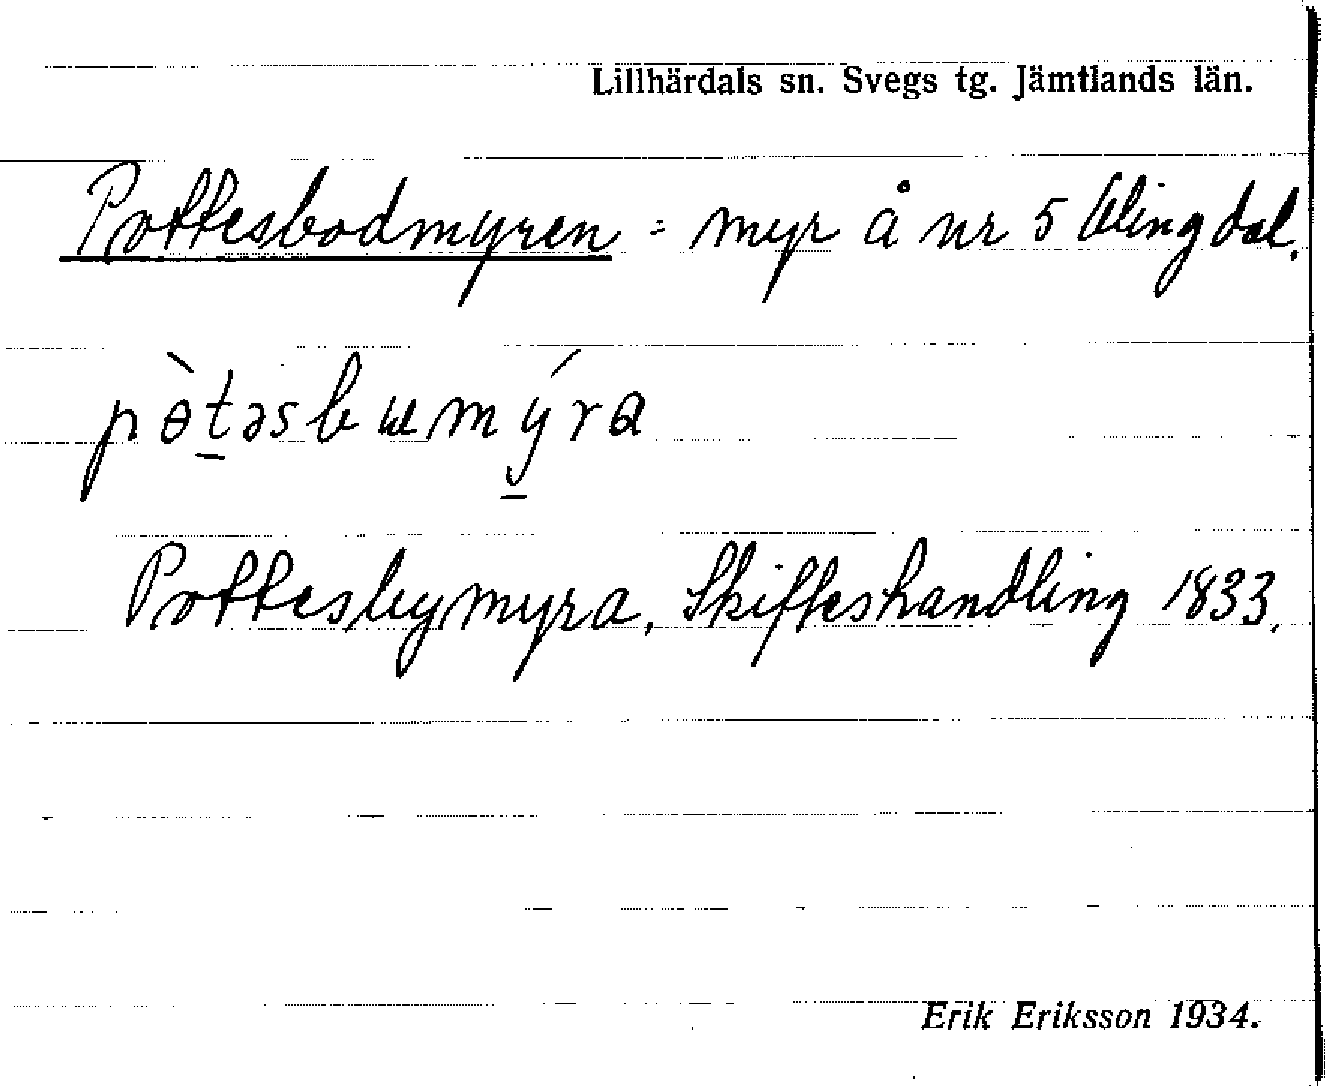 Lillhärdals sn. Svegs tg. Jämtlands län.
Pottesbodmyren = myr å nr 5 Olingdal.
pɵ̀t̠əsbumý̠ra
Pottesbymyra, Skifteshandling 1833.
Erik Eriksson 1934.